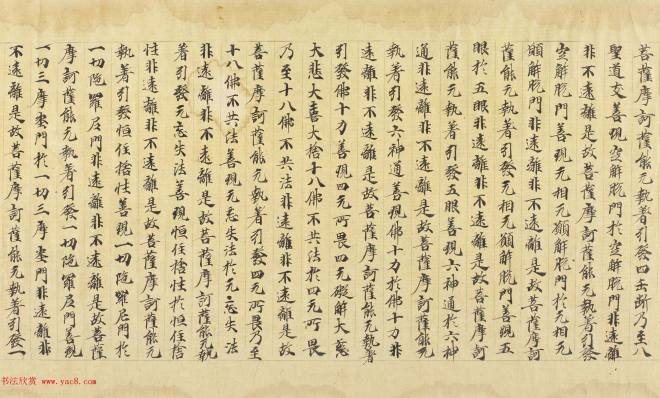 菩薩摩訶薩能无執著引發四正斷乃至八
聖道支善現空解脫門於空解脫門非遠離
非不遠離是故菩薩摩訶薩能无執著引發
空解脫門善現无相无願解脫門於无相无
願解脫門非遠離非不遠離是故菩薩摩訶
薩能无執著引發无相无願解脫門善現五
眼於五眼非遠離非不遠離是故菩薩摩訶
薩能无執著引發五眼善現六神通於六神
通非遠離非不遠離是故菩薩摩訶薩能无
執著引發六神通善現佛十力於佛十力非
遠離非不遠離是故菩薩摩訶薩能无執著
引發佛十力善現四无所畏四无礙解大慈
大悲大喜大捨十八佛不共法於四无所畏
乃至十八佛不共法非遠離非不遠離是故
菩薩摩訶薩能无執著引發四无所畏乃至
十八佛不共法善現无忘失法於无忘失法
非遠離非不遠離是故菩薩摩訶薩能无執
著引發无忘失法善現恒住捨性於恒住捨
性非遠離非不遠離是故菩薩摩訶薩能无
執著引發恒住捨性善現一切陀羅尼門於
一切陀羅尼門非遠離非不遠離是故菩薩
摩訶薩能无執著引發一切陀羅尼門善現
一切三摩地門於一切三摩地門非遠離非
不遠離是故菩薩摩訶薩能无執著引發一
书法欣赏 www.yac8.com